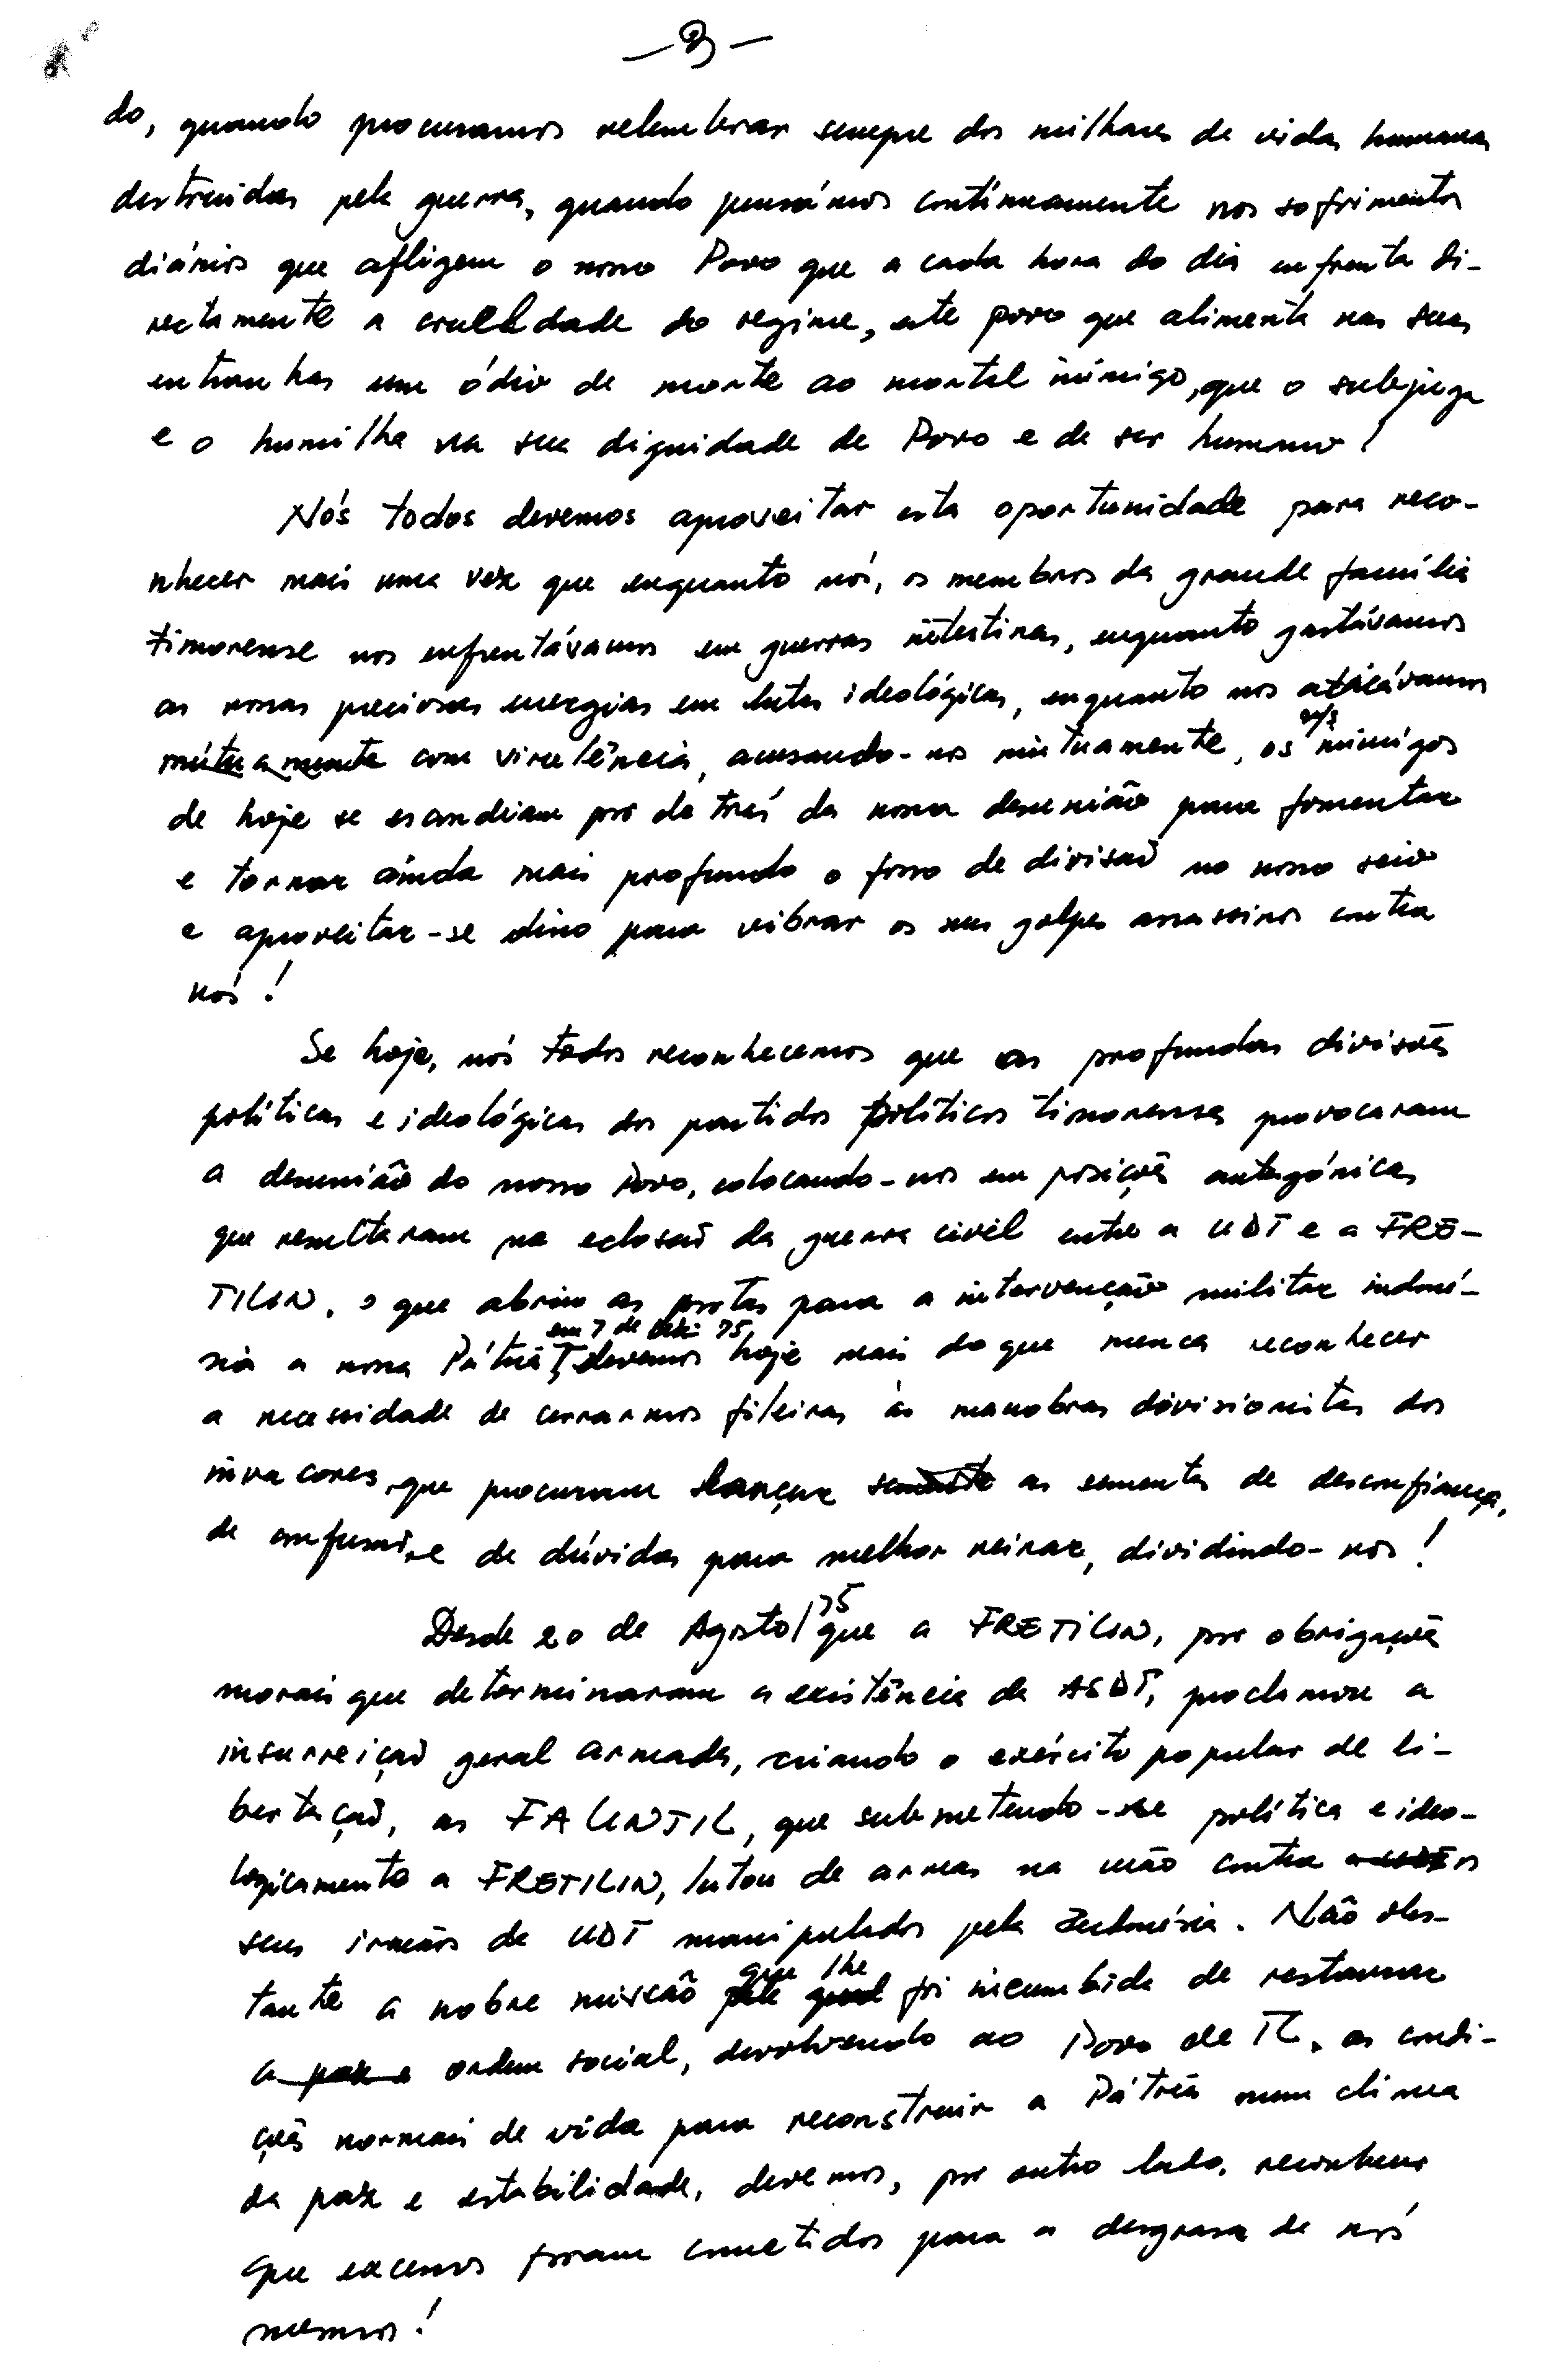 - 3 -
do, quando procuramos relembrar sempre dos milhares de vidas humanas
destruidas pela guerra, quando pensámos continuamente nos sofrimentos
diários que afligem o nosso Povo que a cada hora do dia enfrenta di-
rectamente a crueldade do regime, este povo que alimenta nas suas
entranhas um ódio de morte ao mortal inimigo, que o subjuga
e o humilha na sua dignidade de Povo e de ser humano!
Nós todos devemos aproveitar esta oportunidade para reco-
nhecer mais uma vez que enquanto nós, os membros da grande família
timorense nos enfrentávamos em guerras intestinas, enquanto gastávamos
as nossas preciosas energias em lutas ideológicas, enquanto nos atacávamos
mútuamente com virulência, acusando-nos mutuamente, os inimigos
de hoje se escondiam por de trás da nossa desunião para fomentar
e tornar ainda mais profundo o fosso de divisão no nosso seio
e aproveitar-se disso para vibrar os seus golpes assassinos contra
nós!
Se hoje, nós todos reconhecemos que as profundas divisões
políticas e ideológicas dos partidos políticos timorenses provocaram
a desunião do nosso Povo, colocando-nos em posições antagónicas
que resultaram na eclosão da guerra civil entre a UDT e a FRE-
TILIN, o que abriu as portas para a intervenção militar indoné-
sia a nossa Pátria, em 7 de Dez. 75, devemos hoje mais do que nunca reconhecer
a necessidade de cerrarmos fileiras às manobras divisionistas dos
invasores, que procuram lançar as sementes de desconfiança,
de confusão, e de dúvidas para melhor reinar, dividindo-nos!
Desde 20 de Agosto/75 que a FRETILIN, por obrigações
morais que determinaram a existência da ASDT, proclamou a
insurreição geral armada, criando o exército popular de li-
bertação, as FALINTIL, que submetendo-se política e ideo-
logicamente a FRETILIN, lutou de armas na mão contra os
seus irmãos da UDT manipulados pela Indonésia. Não obs-
tante a nobre missão que lhe foi incumbida de restaurar
a paz e ordem social, devolvendo ao Povo de TL, as condi-
ções normais de vida para reconstruir a Pátria num clima
da paz e estabilidade, devemos, por outro lado, reconhecer
que excessos foram cometidos para a desgrasa de nós
mesmos!